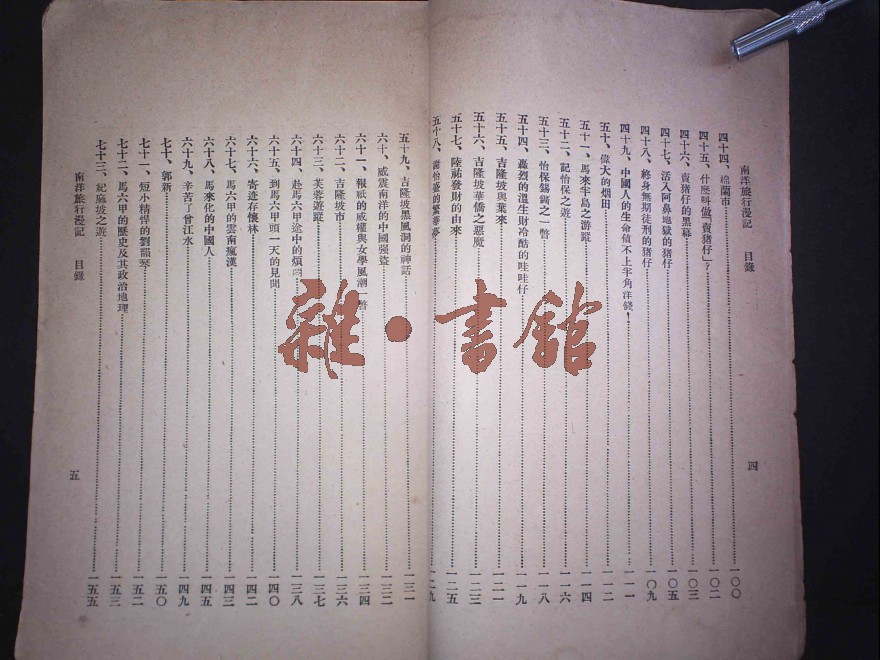 南洋旅行漫記 目錄
四十四、棉蘭市……一〇〇
四十五、什麽叫做「賣猪仔」?……一〇二
四十六、賣猪仔的黑幕……一〇三
四十七、活入阿鼻地獄的猪仔……一〇五
四十八、終身無期徒刑的猪仔……一〇九
四十九、中國人的生命值不上半角洋錢!……一一一
五十、偉大的烟田……一一二
五十一、馬來半島之游蹤……一一四
五十二、記怡保之遊……一一六
五十三、怡保錫鑛之一瞥……一一八
五十四、轟烈的溫生財冷酷的哇哇仔……一一九
五十五、吉隆坡與葉來……一二一
五十六、吉隆坡華僑之惡魔……一二三
五十七、陸祐發財的由來……一二五
五十八、謝怡盛的繁華夢……一二九
四
五十九、吉隆坡黑風洞的神話……一三一
六十、威震南洋的中國强盜……一三二
六十一、報紙的威權與女學風潮一瞥……一三四
六十二、吉隆坡市……一三六
六十三、芙蓉遊蹤……一三七
六十四、赴馬六甲途中的煩悶……一三八
六十五、到馬六甲頭一天的見聞……一四〇
六十六、寄迹存懷林……一四二
六十七、馬六甲的雲南瘋漢……一四三
六十八、馬來化的中國人……一四五
六十九、辛苦了曾江水……一四九
七十、郭新……一五〇
七十一、短小精悍的劉韻琴……一五二
七十二、馬六甲的歷史及其政治地理……一五三
七十三、紀麻坡之遊……一五五
南洋旅行漫記 目錄
五
雜·書館